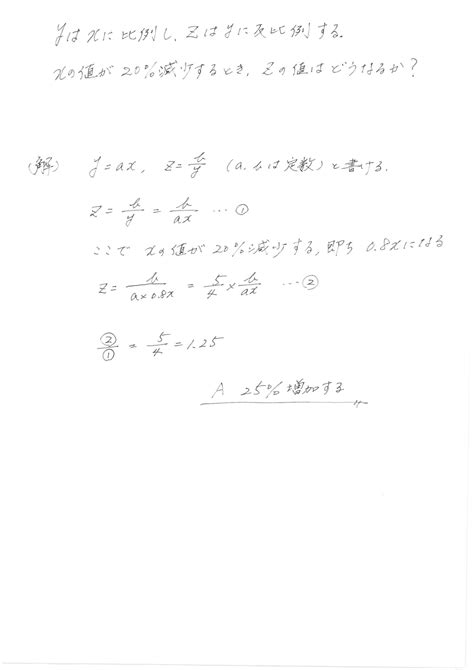 yはxに比例し、zはyに反比例する。
xの値が20%減少するとき、zの値はどうなるか?
(解) y=ax, z=b/y (a、bは定数)と書ける。
z = b/y = b/ax … ①
ここで xの値が20%減少する、即ち 0.8xになる
z = b/(a×0.8x) = 5/4 × b/ax … ②
②/① = 5/4 = 1.25
A 25%増加する